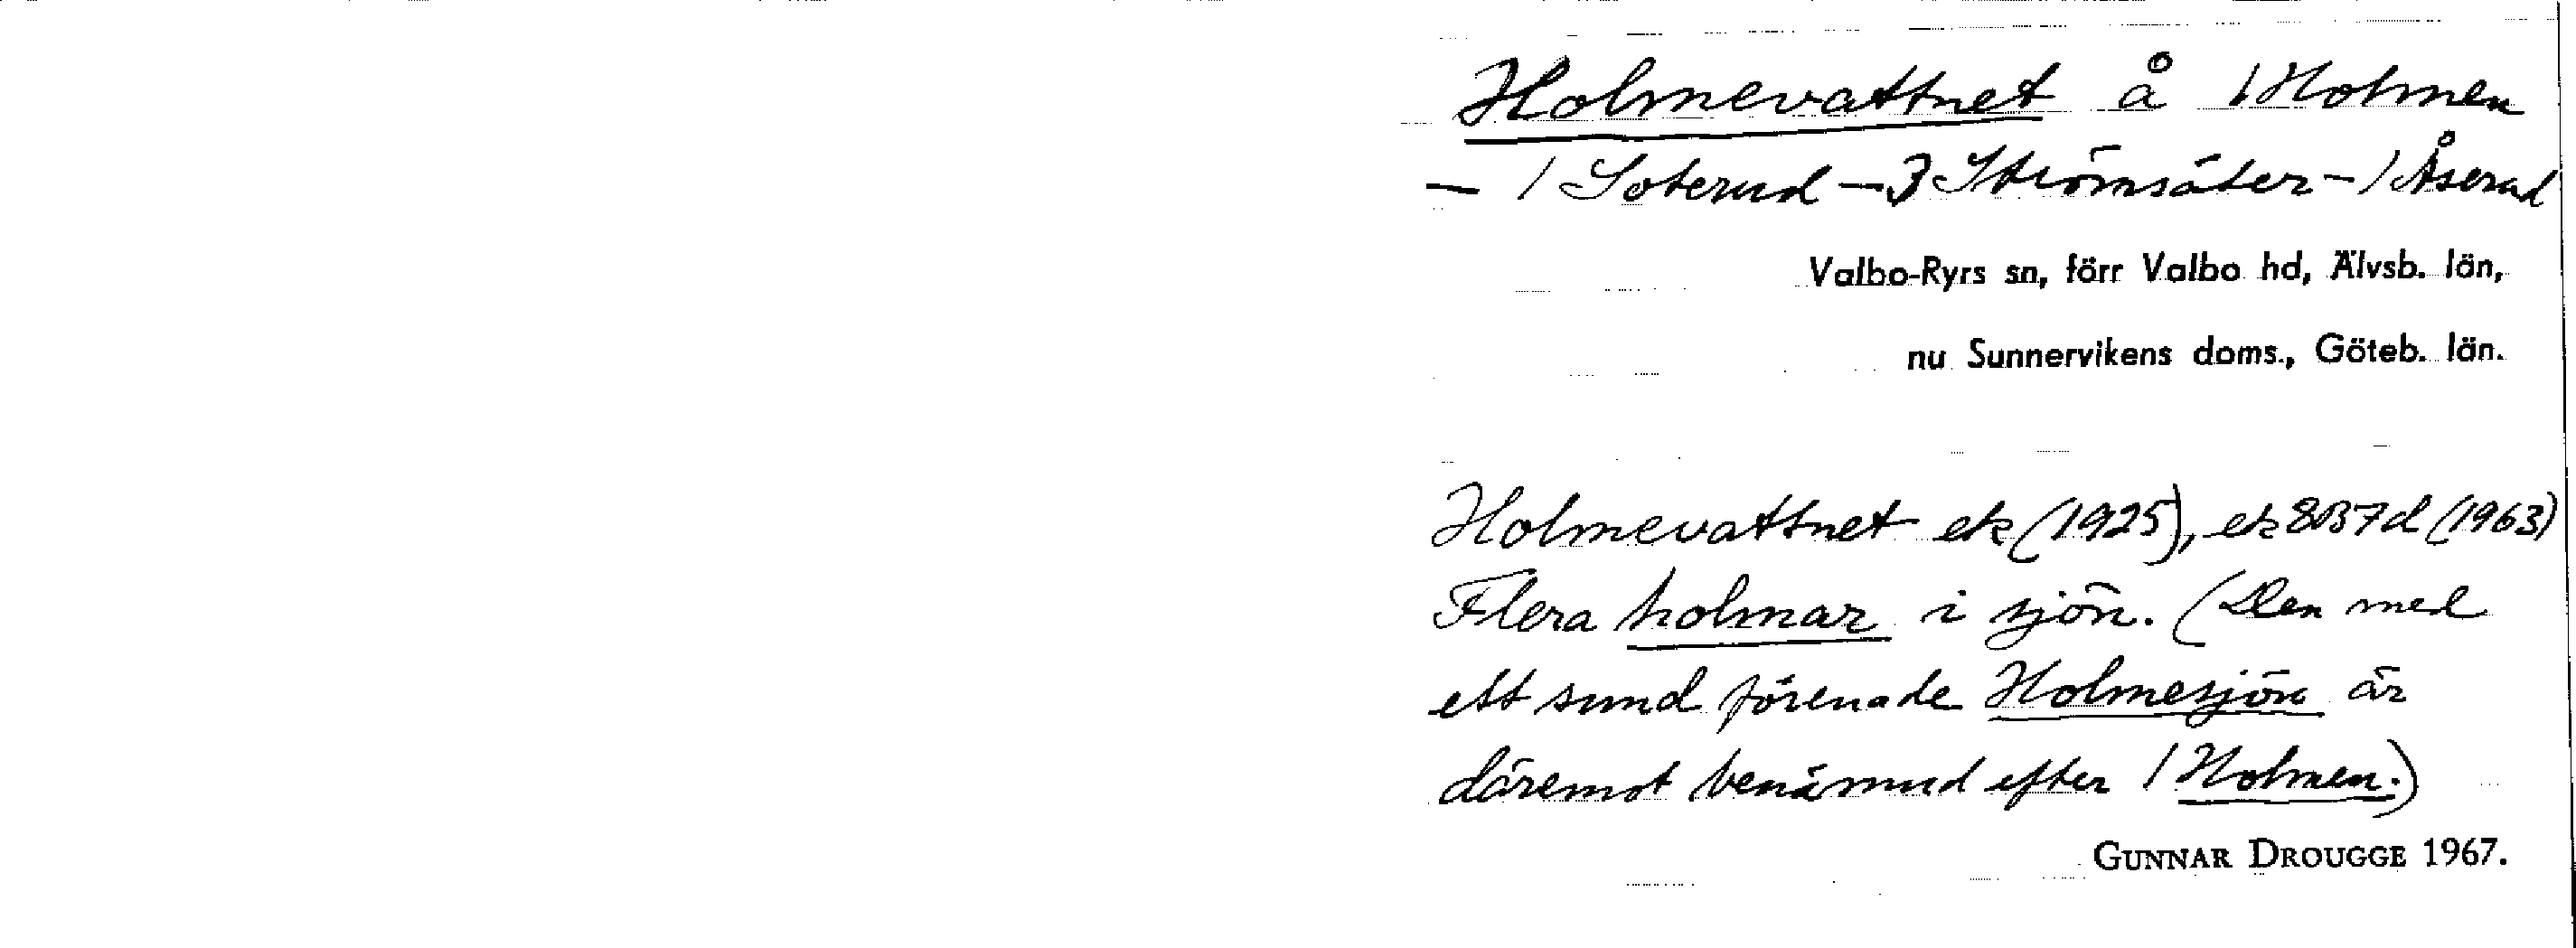 Holmevattnet å 1 Holmen
— 1 Soterud — 3 Strömsäter - 1 Åserud
Valbo-Ryrs sn, förr Valbo hd, Älvsb. län,
nu Sunnervikens doms., Göteb. län.
Holmevattnet ek (1925), ek 8B7d (1963)
Flera holmar i sjön. (Den med
ett sund förenade Holmesjön är
däremot benämnd efter 1 Holmen.)
GUNNAR DROUGGE 1967.